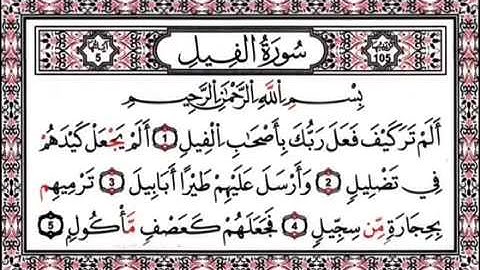 ترتيبها 105 سُورَةُ الْفِيلِ آياتها 5
بِسْمِ اللَّهِ الرَّحْمَٰنِ الرَّحِيمِ
أَلَمْ تَرَ كَيْفَ فَعَلَ رَبُّكَ بِأَصْحَابِ الْفِيلِ 1 أَلَمْ يَجْعَلْ كَيْدَهُمْ
فِي تَضْلِيلٍ 2 وَأَرْسَلَ عَلَيْهِمْ طَيْرًا أَبَابِيلَ 3 تَرْمِيهِم
بِحِجَارَةٍ مِّن سِجِّيلٍ 4 فَجَعَلَهُمْ كَعَصْفٍ مَّأْكُولٍ 5